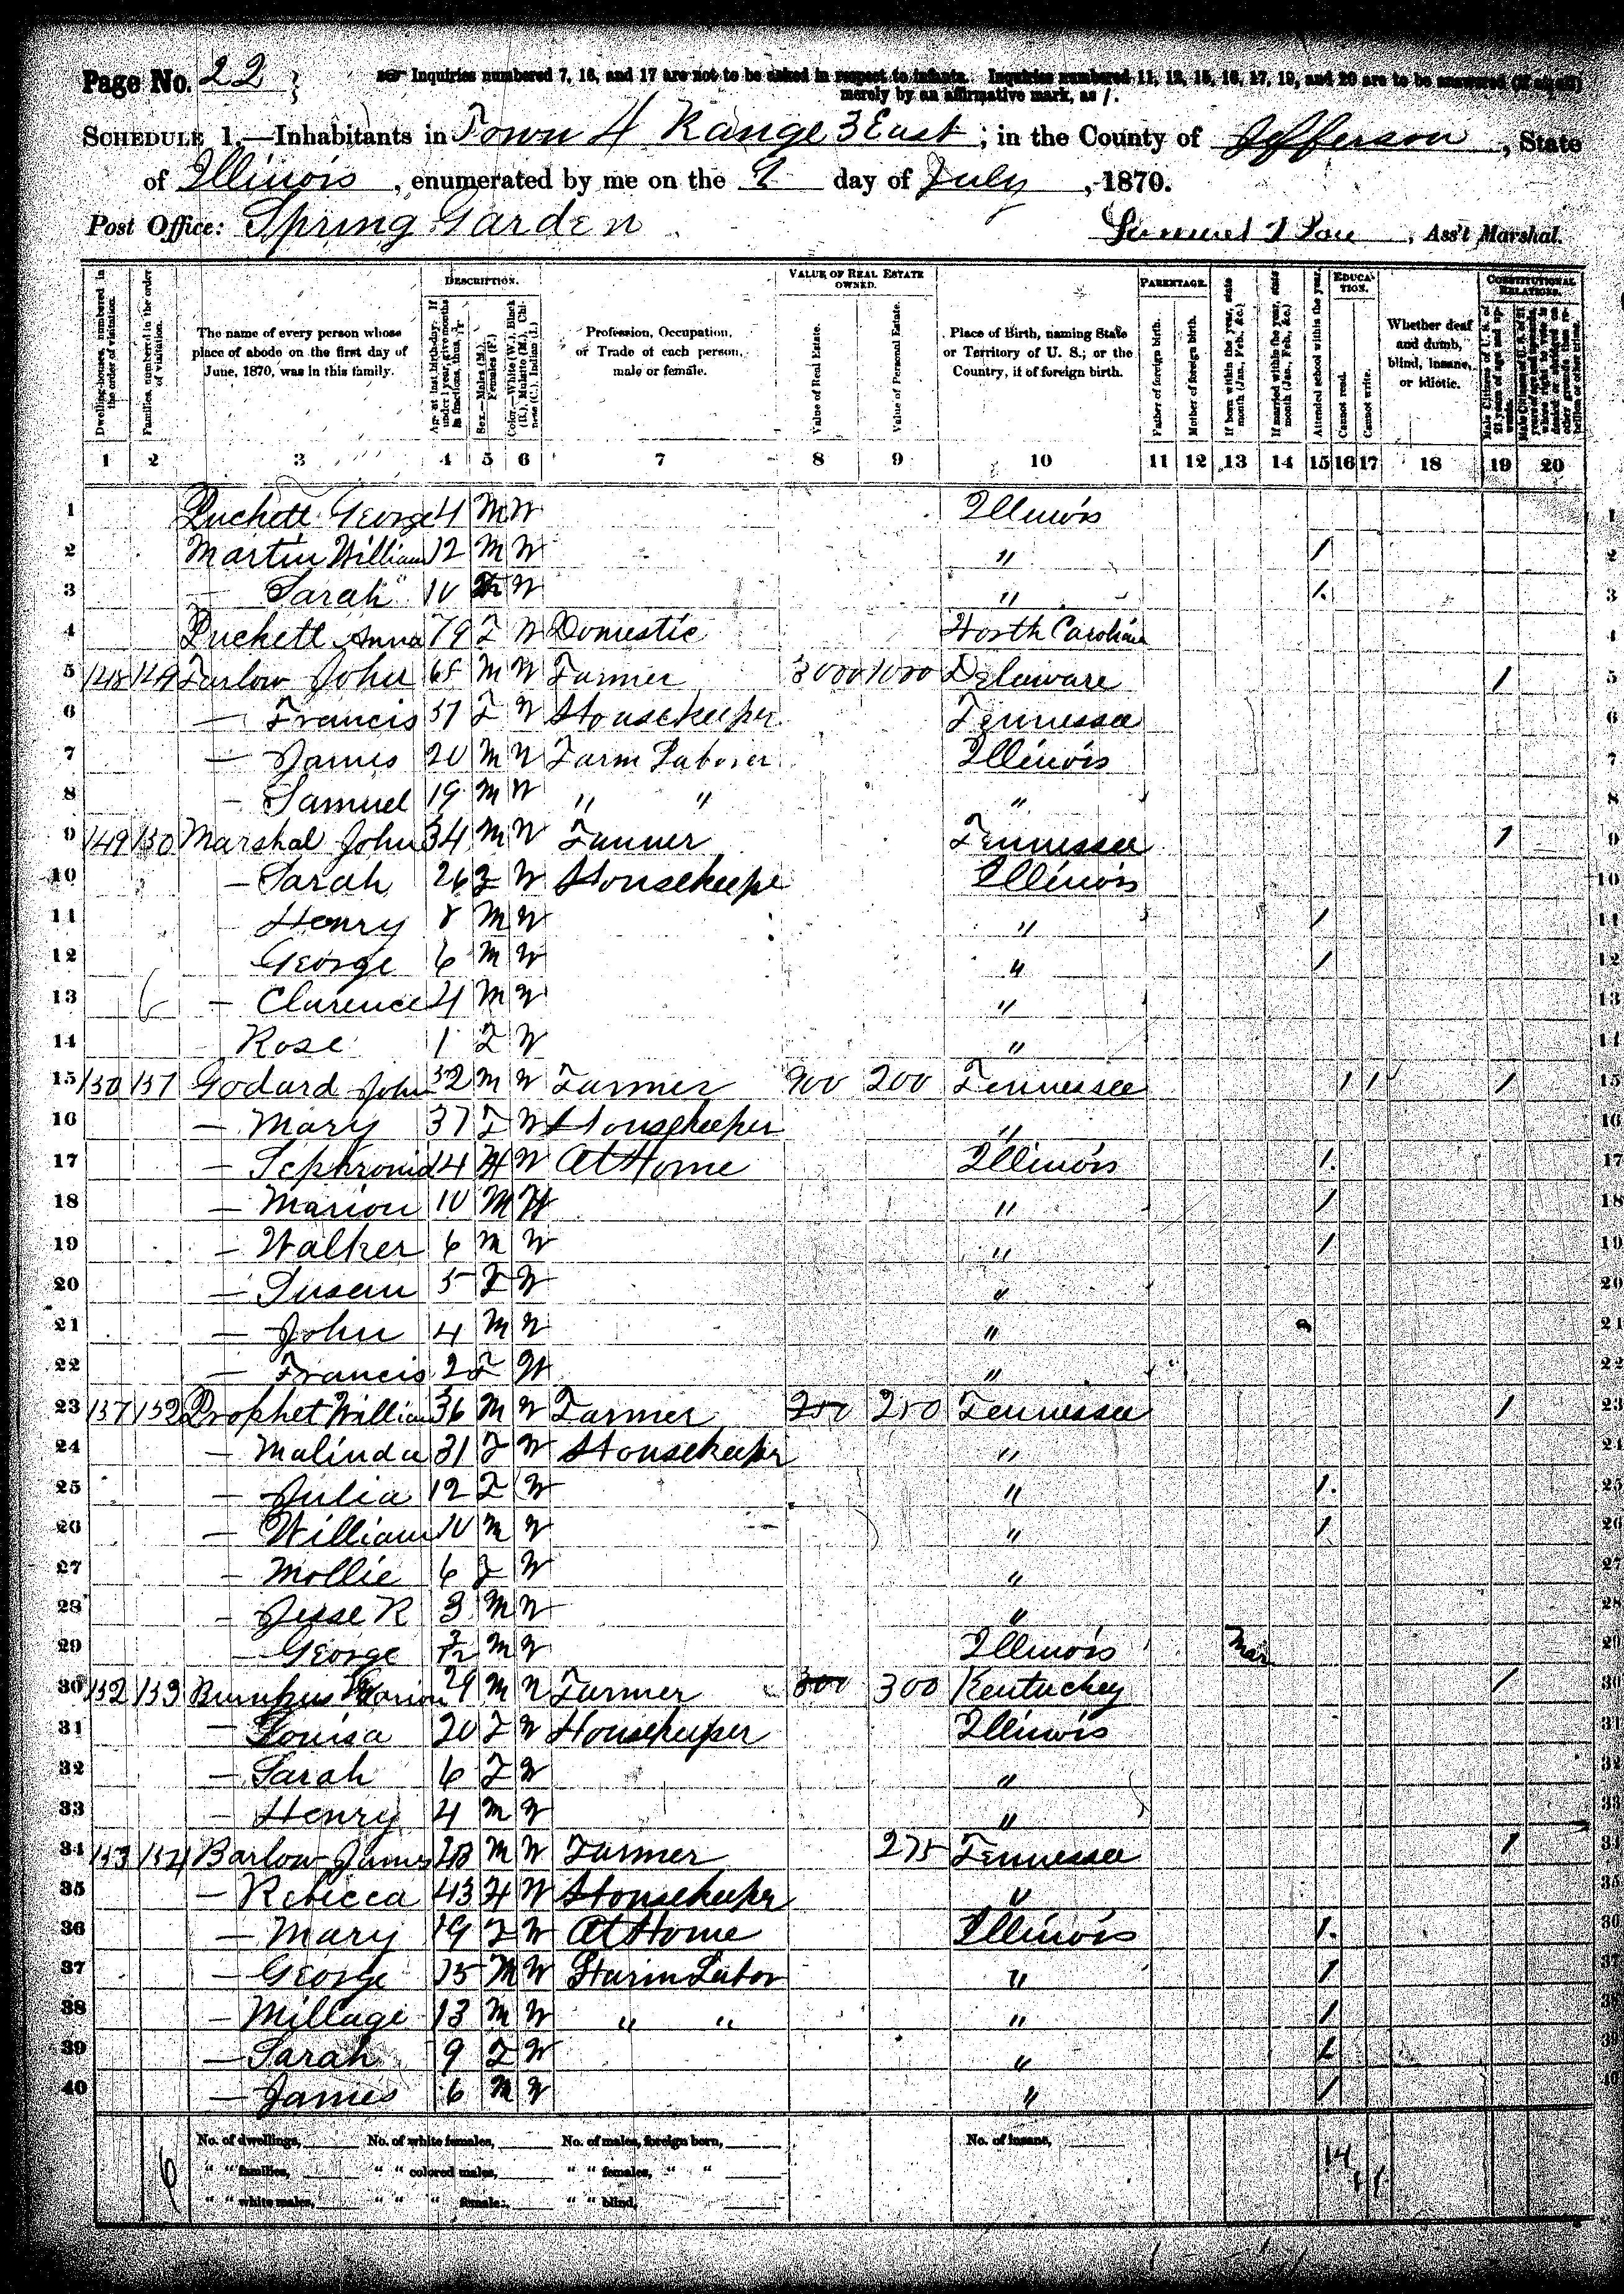 Page No. 22
Inquiries numbered 7, 16, and 17 are not to be asked in respect to infants. Inquiries numbered 11, 12, 15, 16, 17, 19, and 20 are to be answered (if at all)
merely by an affirmative mark, as /.
SCHEDULE 1.—Inhabitants in Town 4 Range 3 East, in the County of Jefferson, State
of Illinois, enumerated by me on the day of July, 1870.
Post Office: Spring Garden Ass't Marshal.
Dwelling-houses, numbered in the order of visitation.
Families, numbered in the order of visitation.
The name of every person whose place of abode on the first day of June, 1870, was in this family.
DESCRIPTION.
Age at last birth-day. If under 1 year, give months in fractions, thus,
Sex.—Males (M.), Females (F.)
Color.—White (W.), Black (B.), Mulatto (M.), Chinese (C.), Indian (I.)
Profession, Occupation, or Trade of each person, male or female.
VALUE OF REAL ESTATE OWNED.
Value of Real Estate.
Value of Personal Estate.
Place of Birth, naming State or Territory of U. S.; or the Country, if of foreign birth.
PARENTAGE.
Father of foreign birth.
Mother of foreign birth.
If born within the year, state month (Jan., Feb., &c.)
If married within the year, state month (Jan., Feb., &c.)
Attended school within the year.
EDUCATION.
Cannot read.
Cannot write.
Whether deaf and dumb, blind, insane, or idiotic.
CONSTITUTIONAL RELATIONS.
Male Citizens of U. S. of 21 years of age and upwards.
1 2 3 4 5 6 7 8 9 10 11 12 13 14 15 16 17 18 19 20
1 Puckett George 4 M W Illinois 1
2 Martin William 12 M W " / 2
3 Sarah 10 W " / 3
4 Puckett Anna 79 F W Domestic North Carolina 4
5 148 149 Farlow John 65 M W Farmer 3000 1000 Delaware / 5
6 — Francis 57 F W Housekeeper Tennessee 6
7 — James 20 M W Farm Laborer Illinois 7
8 — Samuel 19 M W " " " 8
9 149 150 Marshal John 34 M W Tanner Tennessee / 9
10 — Sarah 26 F W Housekeeper Illinois 10
11 Henry 8 M W " / 11
12 George 6 M W " / 12
13 — Clarence 4 M W " 13
14 Rose 1 F W " 14
15 150 151 Godard John 52 M W Farmer 900 200 Tennessee / / / 15
16 — Mary 37 F W Housekeeper " 16
17 — Sephronia 14 F W At Home Illinois / 17
18 — Marion 10 M W " / 18
19 — Walker 6 M W " / 19
20 — Susan 5 F W " 20
21 — John 4 M W " 21
22 — Francis 2 F W " 22
23 151 152 Prophet William 36 M W Farmer 250 250 Tennessee / 23
24 — Malinda 31 F W Housekeeper " 24
25 — Julia 12 F W " / 25
26 — William 10 M W " / 26
27 — Mollie 6 F W " 27
28 — Jesse R 3 M W " 28
29 — George 3/12 M W Illinois Mar 29
30 152 153 Bumphus Marion 29 M W Farmer 300 300 Kentucky / 30
31 — Louisa 20 F W Housekeeper Illinois 31
32 — Sarah 6 F W " 32
33 — Henry 4 M W " 33
34 153 154 Barlow James 48 M W Farmer 275 Tennessee / 34
35 — Rebicca 43 F W Housekeeper " 35
36 — Mary 19 F W At Home Illinois / 36
37 — George 15 M W Farm Labor " / 37
38 — Millage 13 M W " " " / 38
39 — Sarah 9 F W " / 39
40 — James 6 M W " / 40
No. of dwellings, No. of white females, No. of males, foreign born, No. of insane,
6 " " families, " " colored males, " " females, " " 14
" " white males, " " " females, " " blind,